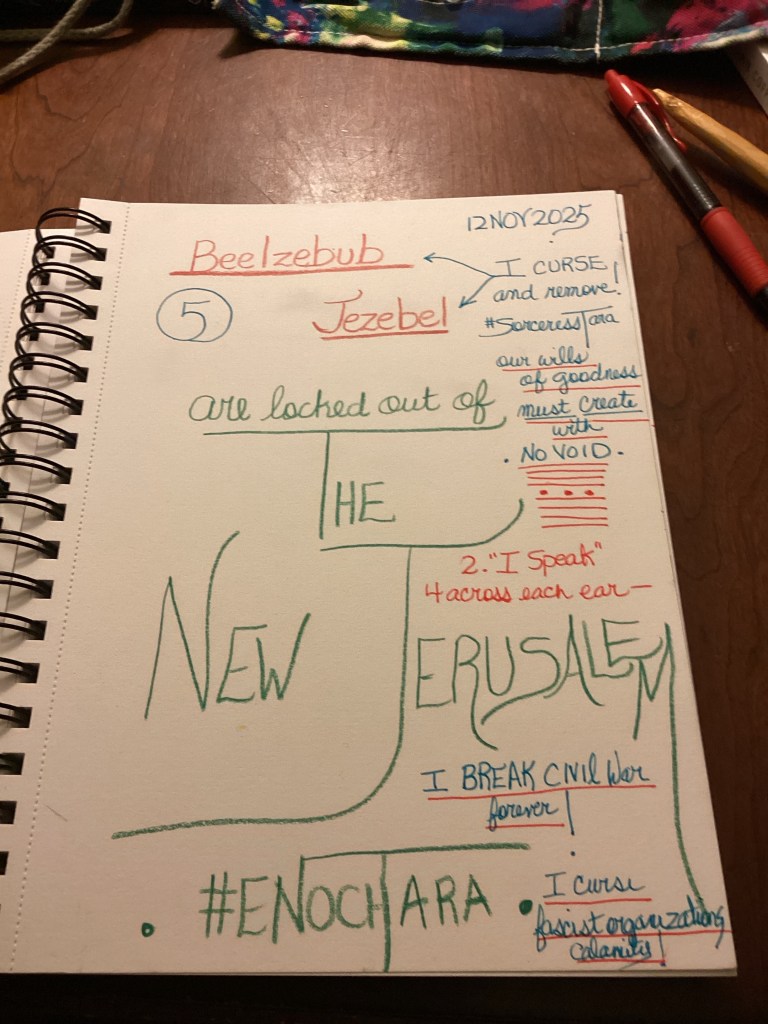 12 NOV 2025
Beelzebub
I CURSE
and remove!
5
Jezebel
#SorceressTara
our wills
of goodness
must create
with
. NO VOID .
are locked out of
THE
2. "I Speak"
4 across each ear —
NEW JERUSALEM
I BREAK CIVIL War
forever!
. #ENOCHTARA .
I curse
fascist organizations
calamity!